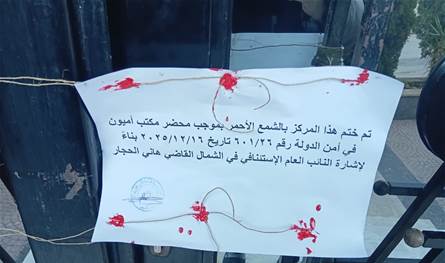 تم ختم هذا المركز بالشمع الأحمر بموجب محضر مكتب أميون
في أمن الدولة رقم ٦٠١/٢٦ تاريخ ٢٠٢٥/١٢/١٦ بناءً
لإشارة النائب العام الإستئنافي في الشمال القاضي هاني الحجار